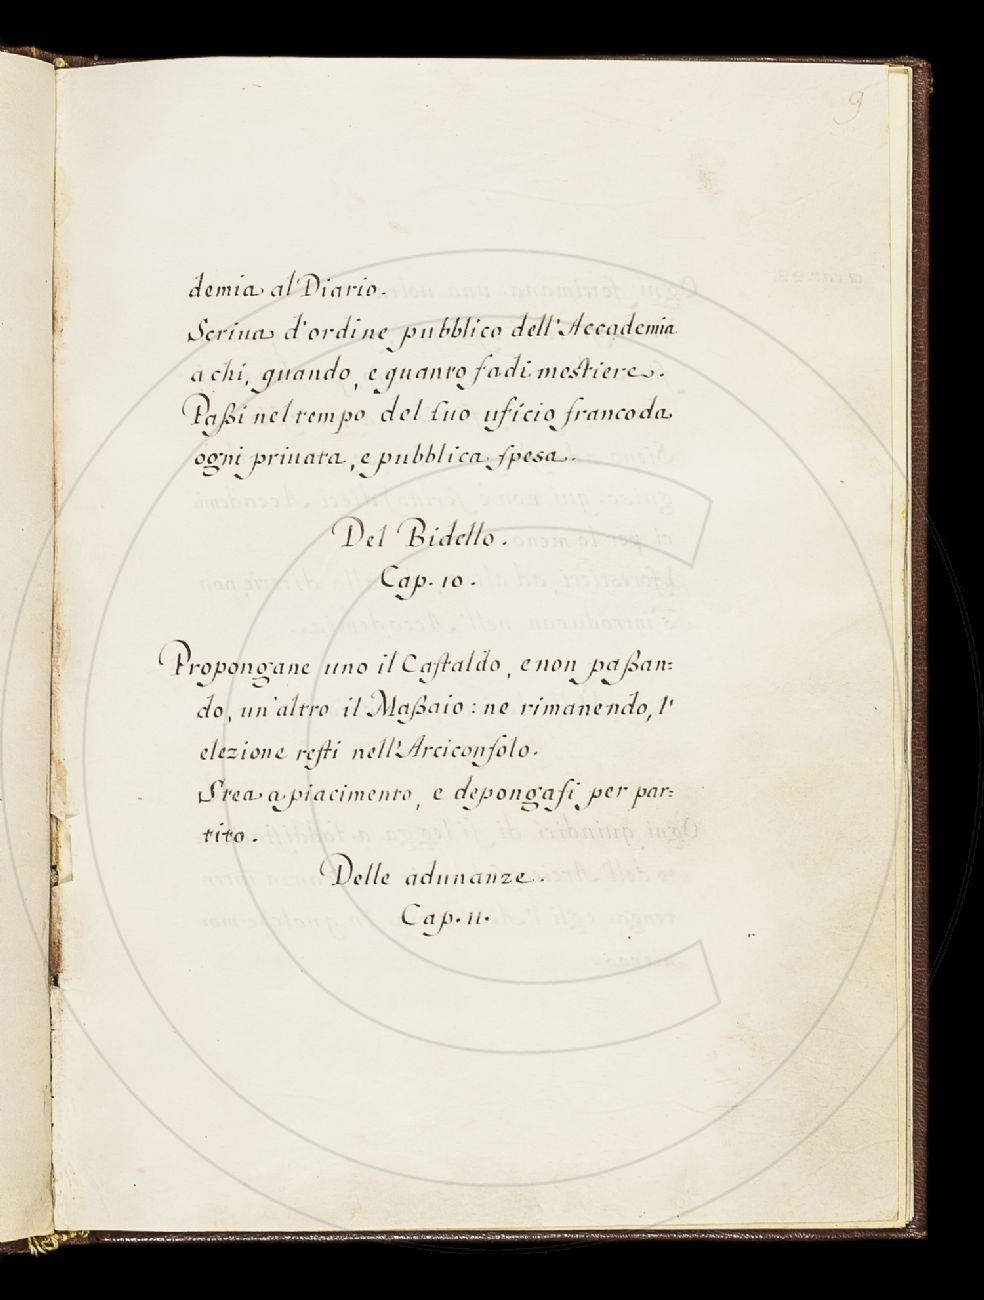 9
demia al Diario.
Scriua d'ordine pubblico dell'Accademia
a chi, quando, e quanto fa di mestiere.
Paßi nel tempo del suo uficio franco da
ogni priuata, e pubblica spesa.
Del Bidello.
Cap. 10.
Propongane uno il Castaldo, e non paßan:
do, un'altro il Maßaio: ne rimanendo, l'
elezione resti nell'Arciconsolo.
Stea a piacimento, e depongasi per par:
tito.
Delle adunanze.
Cap. 11.